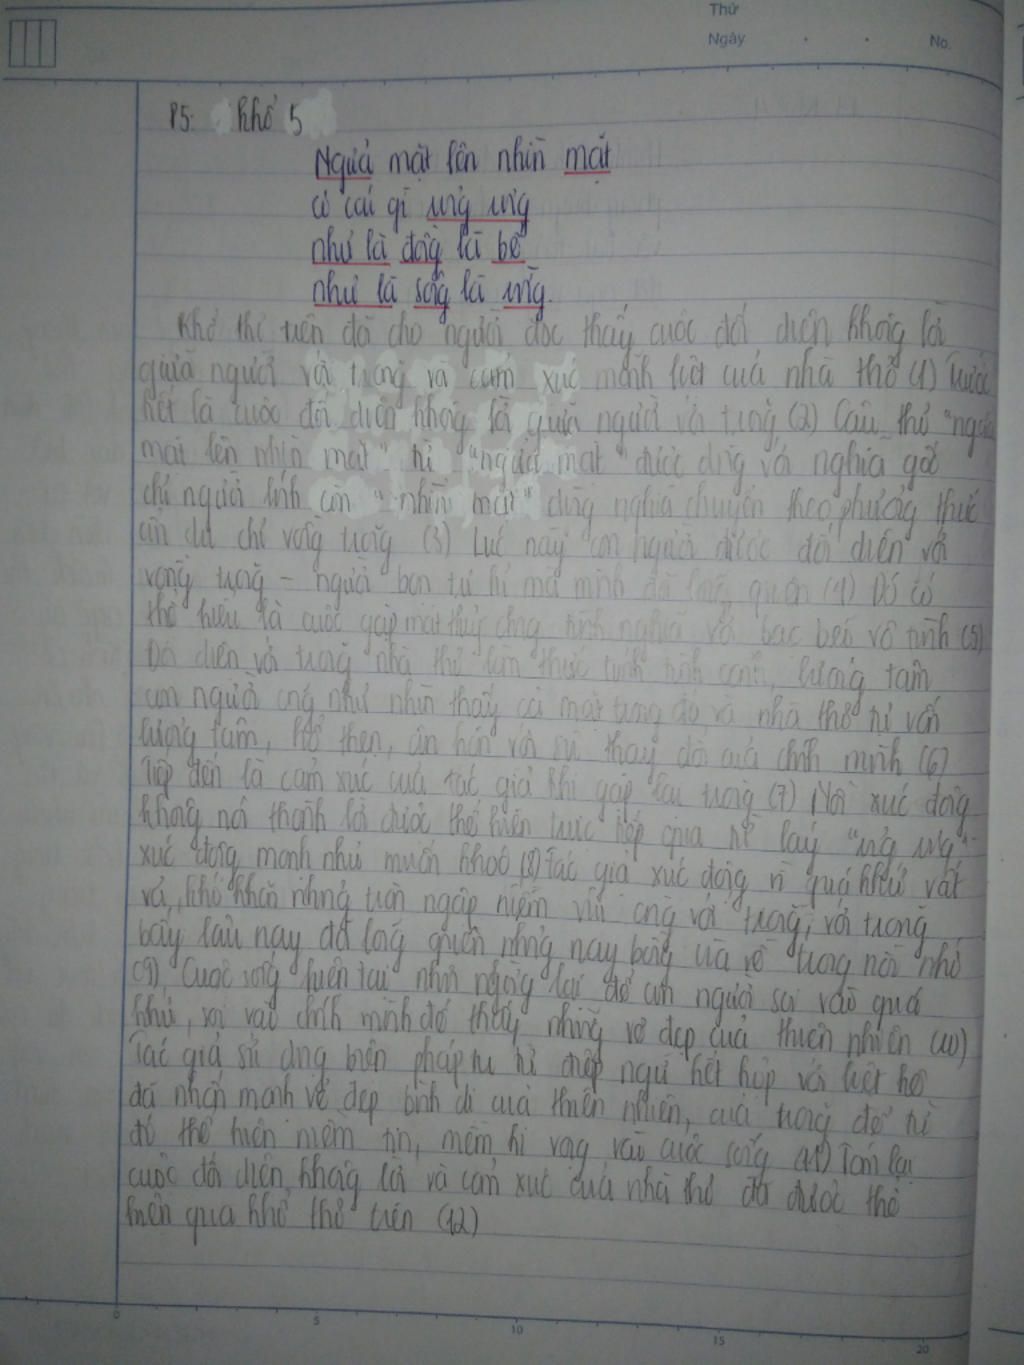 Thứ
Ngày . . No.
P5: khổ 5
Ngửa mặt lên nhìn mặt
có cái gì rưng rưng
như là đồng là bể
như là sông là rừng.
Khổ thơ trên đã cho người đọc thấy cuộc đối diện không lời
giữa người với trăng và cảm xúc mãnh liệt của nhà thơ (1) Trước
hết là cuộc đối diện không lời giữa người với trăng (2) Câu thơ "ngửa
mặt lên nhìn mặt" từ "ngửa mặt" được dùng với nghĩa gốc
chỉ người lính còn "nhìn mặt" dùng nghĩa chuyển theo phương thức
ẩn dụ chỉ vầng trăng (3) Lúc này con người được đối diện với
vầng trăng - người bạn tri kỉ mà mình đã lãng quên (4) Đó có
thể hiểu là cuộc gặp mặt thủy chung tình nghĩa với bạc bẽo vô tình (5)
Đối diện với trăng nhà thơ lương tâm
con người cũng như nhìn thấy cả mặt trăng đó và nhà thơ tự vấn
lương tâm, hổ thẹn, ân hận với sự thay đổi của chính mình (6)
Tiếp đến là cảm xúc của tác giả khi gặp lại trăng (7) Nỗi xúc động
không nói thành lời được thể hiện trực tiếp qua từ láy "rưng rưng"-
xúc động mạnh như muốn khóc (8) Tác giả xúc động vì quá khứ vất
vả, khó khăn nhưng tràn ngập niềm vui cùng với trăng, với trăng
bấy lâu nay đã lãng quên nhưng nay bỗng ùa về trong nỗi nhớ
(9). Cuộc sống hiện tại như ngừng lại để con người soi vào quá
khứ, soi vào chính mình để thấy những vẻ đẹp của thiên nhiên (10)
Tác giả sử dụng biện pháp tu từ điệp ngữ kết hợp với liệt kê
đã nhấn mạnh vẻ đẹp bình dị của thiên nhiên, của trăng để từ
đó thể hiện niềm tin, niềm hi vọng vào cuộc sống (11) Tóm lại
cuộc đối diện không lời và cảm xúc của nhà thơ đã được thể
hiện qua khổ thơ trên (12)
0 5 10 15 20